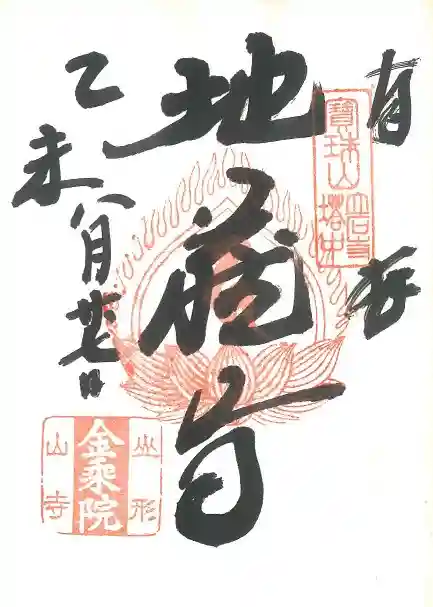 寳珠山
立石寺
塔中
地蔵尊
乙未八月廿七日
山形
金乘院
山寺